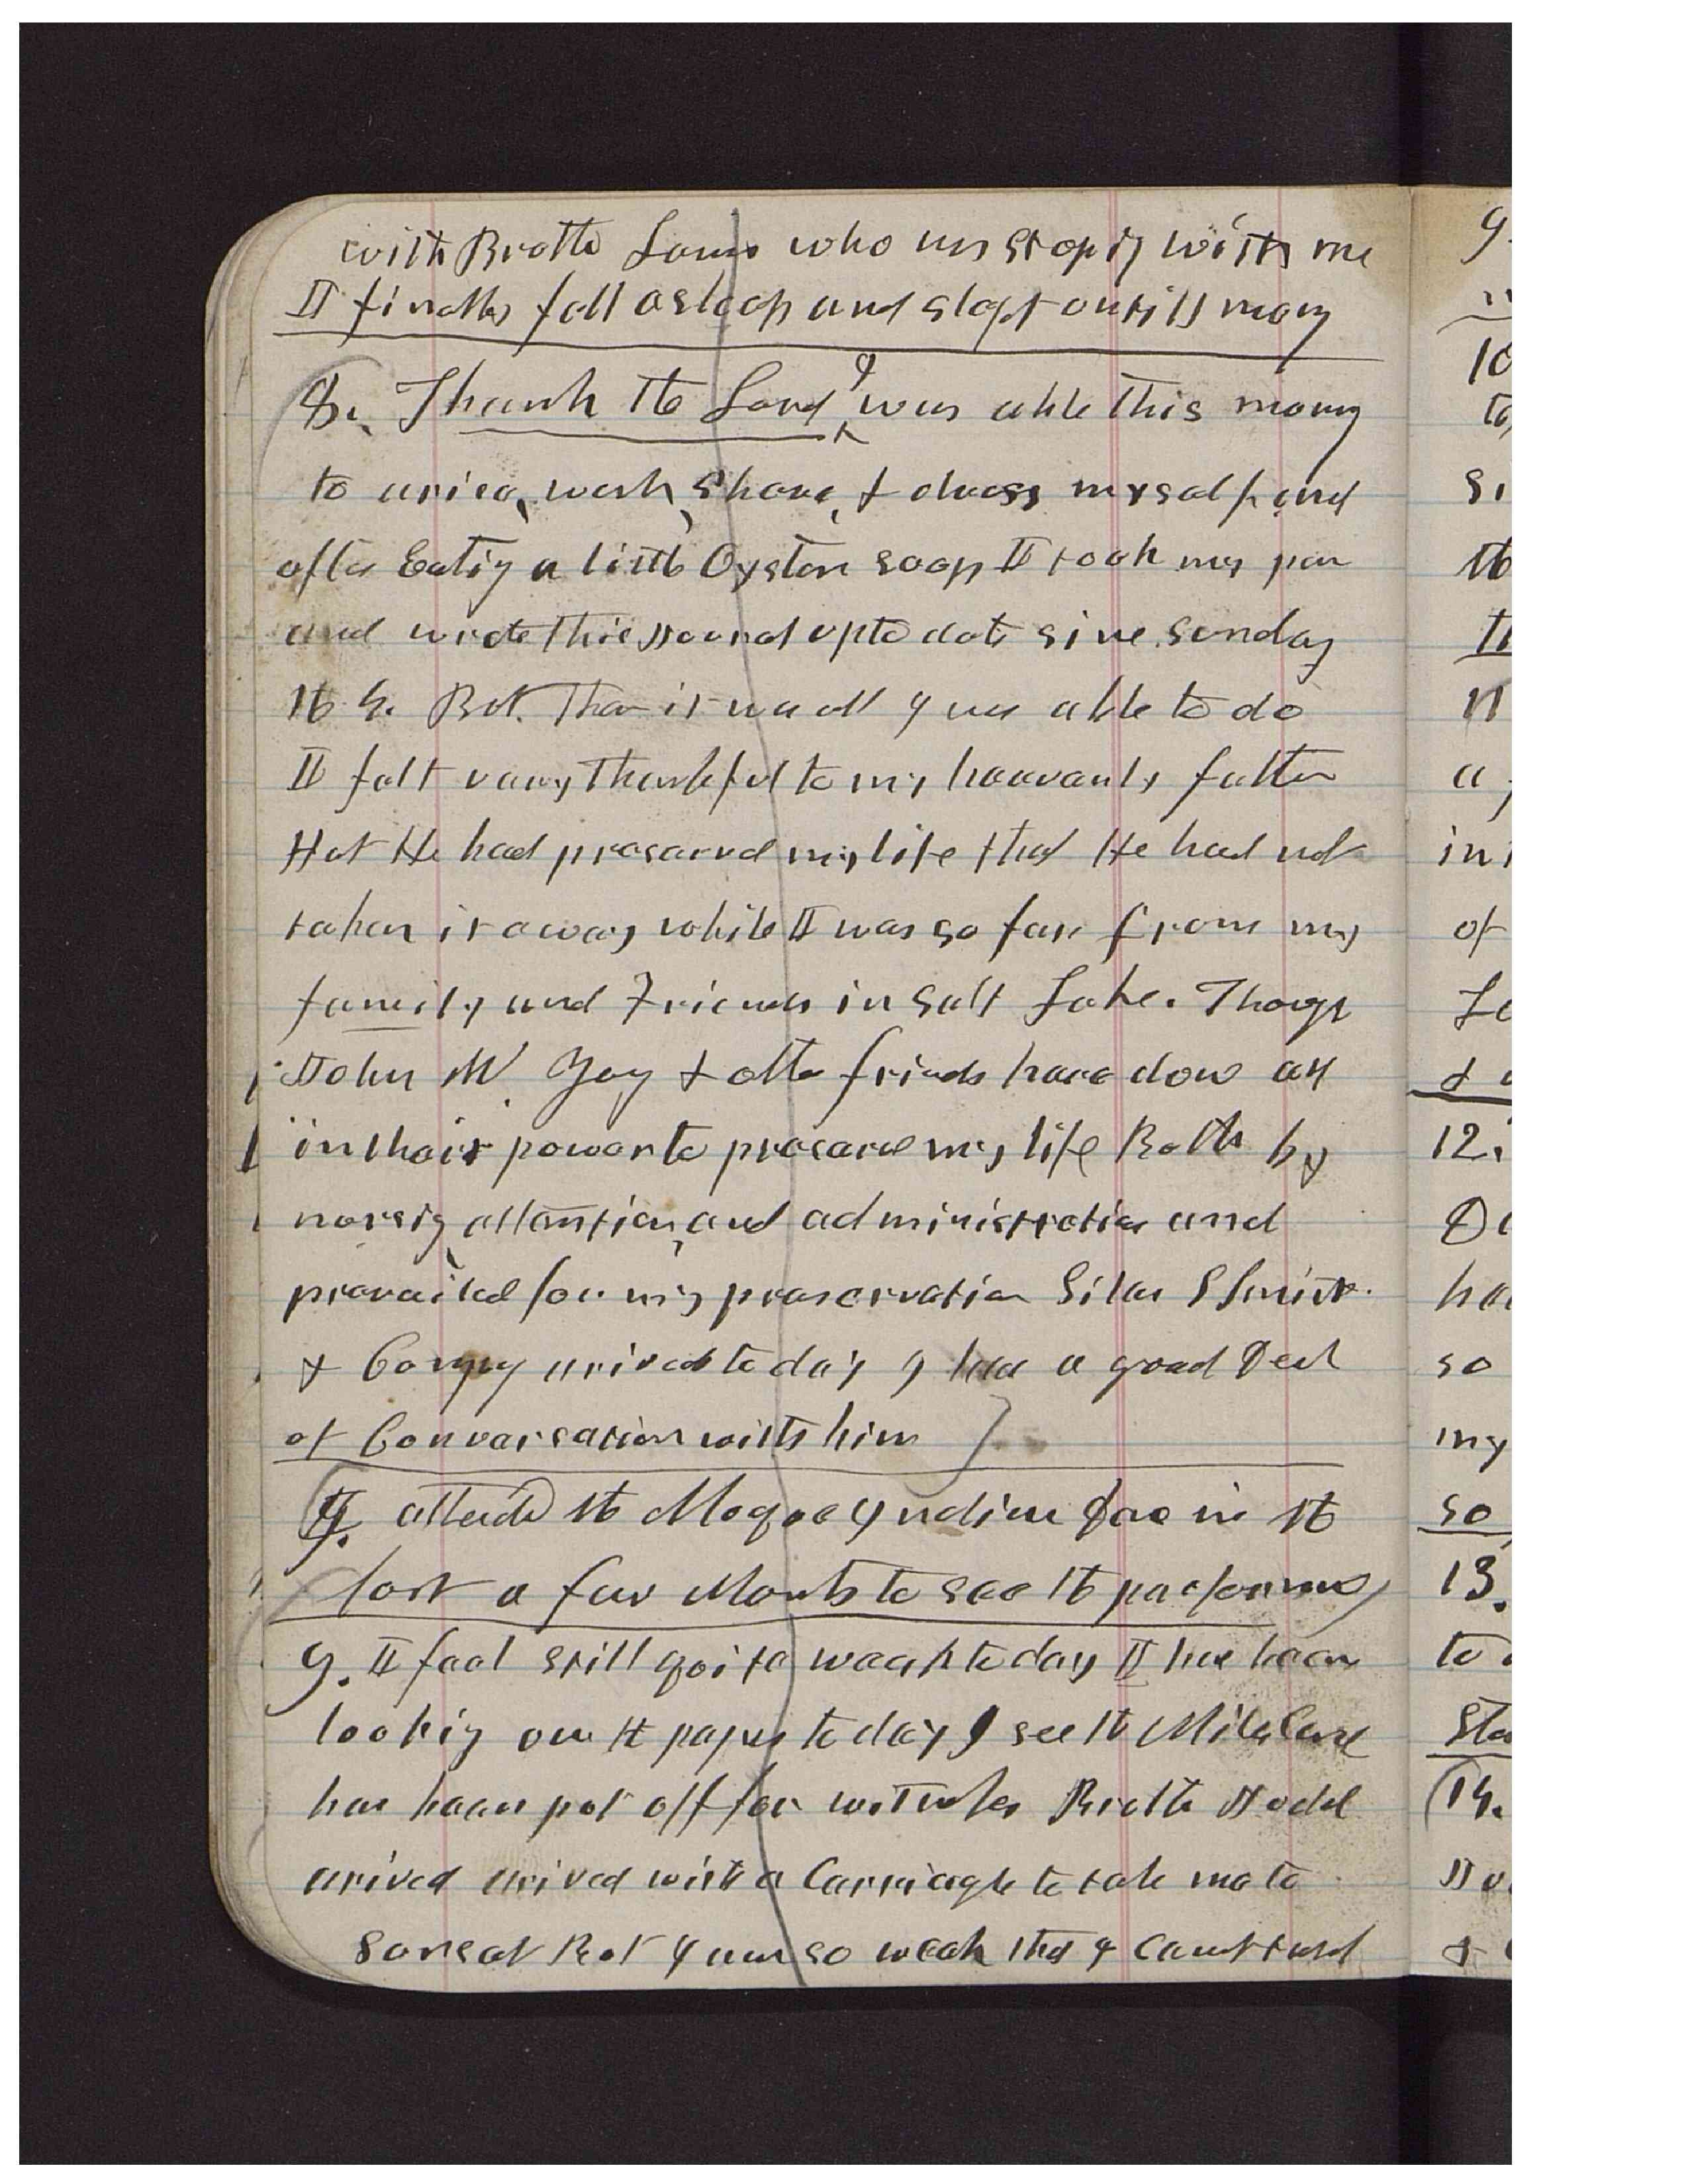 with Brothe Laws who was stoping with me
I finally fell asleep and slept untill morng
8. Thank the Lord I was able this morng
to arise, wash, Shave, & dress myself, and
after Eating a little Oyster soop I took my pen
and wrote this Journal up to date sine Sunday
the 4. But Then it was all I was able to do
I felt very Thankful to my heavenly father
that He had preserved my life that He had not
taken it away while I was so far from my
family and Friends in Salt Lake. Though
John W. Young & other friends have done all
in their power to preserve my life Both by
nursig, attention, and administration and
prevailed for my preservation Silas S Smith
& Compny arived to day I had a good Deal
of Conversation with him
I attended the Moque Indian in the
fort a few Monts to see the performans
9. I feel still quite weak to day I have been
looking over the papers to day I see the Miles Case
has been put off for witnesses Brother Judd
arived arived with a Carriagle to take me to
Sunset But I am so weak that I cannot stand
9.
10
to
12.
of
so
my
so
13.
to
14.